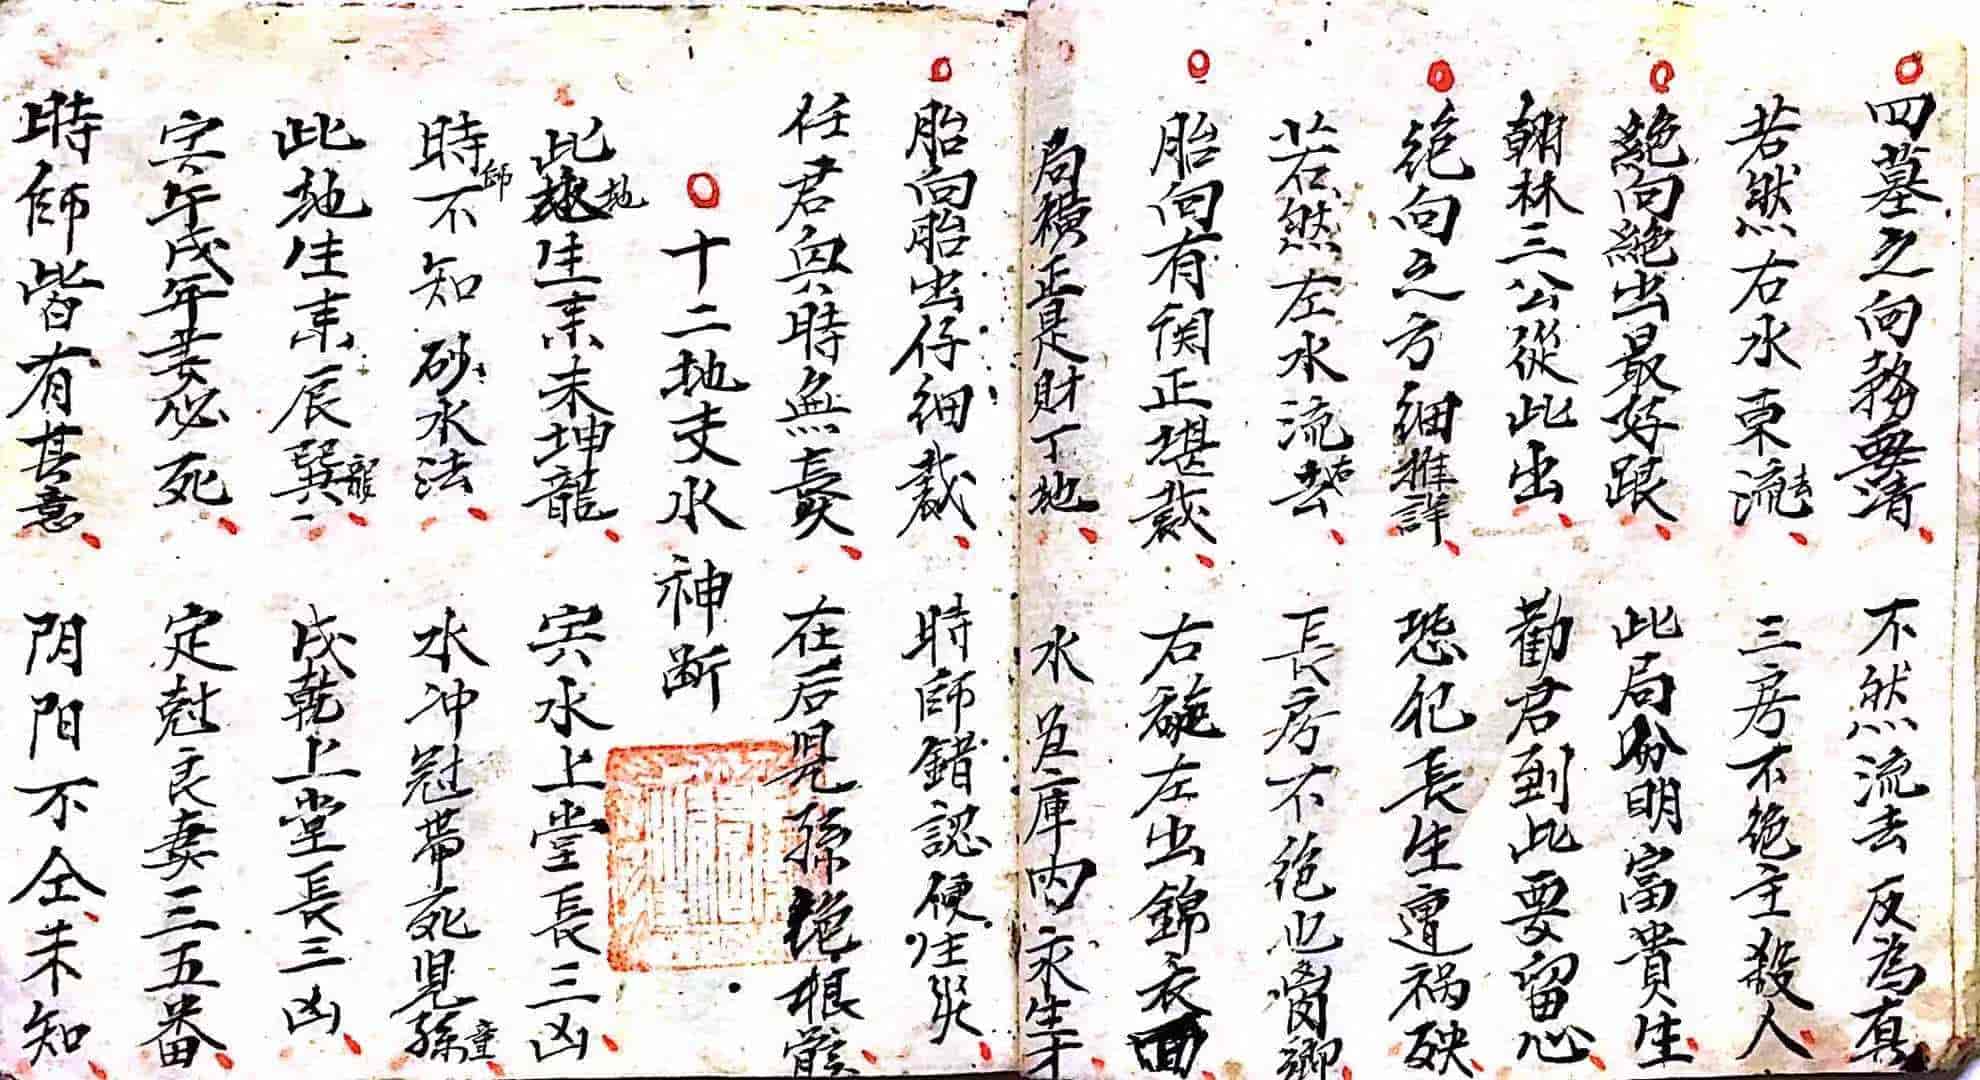 四墓之向務要清 不然流去反為真
若然右水東流去 三房不绝主殺人
絶向絶出最好跟 此局分明富貴生
翰林三公從此出 勸君到此要留心
绝向之方細推詳 恐犯長生遭祸殃
若然左水流右去 長房不绝也窮鄉
胎向有関正堪裁 右旋左出錦衣回
局橫正是財丁地 水出庫内永生才
胎向胎出仔细裁 時師錯認便生災
任君與時無長 在后児孫绝根
十二地支水神断
此地生来未坤龍 寅水上堂長三凶
時師不知砂水法 水冲冠帯死児孫童
此地生来辰巽龍 戌乾上堂長三凶
寅午戌年妻必死 定尅良妻三五番
時師皆有其意 阴阳不全未知